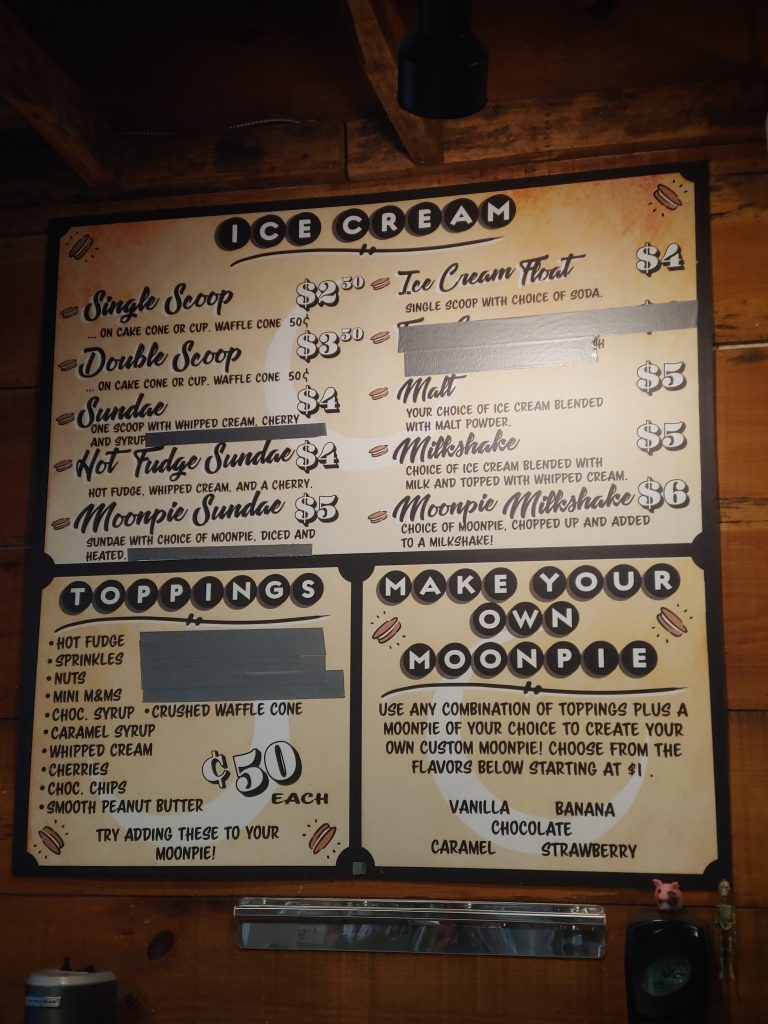 ICE CREAM
Single Scoop $2⁵⁰
... ON CAKE CONE OR CUP. WAFFLE CONE 50¢
Double Scoop $3⁵⁰
... ON CAKE CONE OR CUP. WAFFLE CONE 50¢
Sundae $4
ONE SCOOP WITH WHIPPED CREAM, CHERRY
AND SYRUP
Hot Fudge Sundae $4
HOT FUDGE, WHIPPED CREAM, AND A CHERRY.
Moonpie Sundae $5
SUNDAE WITH CHOICE OF MOONPIE, DICED AND
HEATED.
Ice Cream Float $4
SINGLE SCOOP WITH CHOICE OF SODA.
Malt $5
YOUR CHOICE OF ICE CREAM BLENDED
WITH MALT POWDER.
Milkshake $5
CHOICE OF ICE CREAM BLENDED WITH
MILK AND TOPPED WITH WHIPPED CREAM.
Moonpie Milkshake $6
CHOICE OF MOONPIE, CHOPPED UP AND ADDED
TO A MILKSHAKE!
TOPPINGS
• HOT FUDGE
• SPRINKLES
• NUTS
• MINI M&MS
• CHOC. SYRUP • CRUSHED WAFFLE CONE
• CARAMEL SYRUP
• WHIPPED CREAM
• CHERRIES
• CHOC. CHIPS
• SMOOTH PEANUT BUTTER
¢50
EACH
TRY ADDING THESE TO YOUR
MOONPIE!
MAKE YOUR
OWN
MOONPIE
USE ANY COMBINATION OF TOPPINGS PLUS A
MOONPIE OF YOUR CHOICE TO CREATE YOUR
OWN CUSTOM MOONPIE! CHOOSE FROM THE
FLAVORS BELOW STARTING AT $1 .
VANILLA BANANA
CHOCOLATE
CARAMEL STRAWBERRY